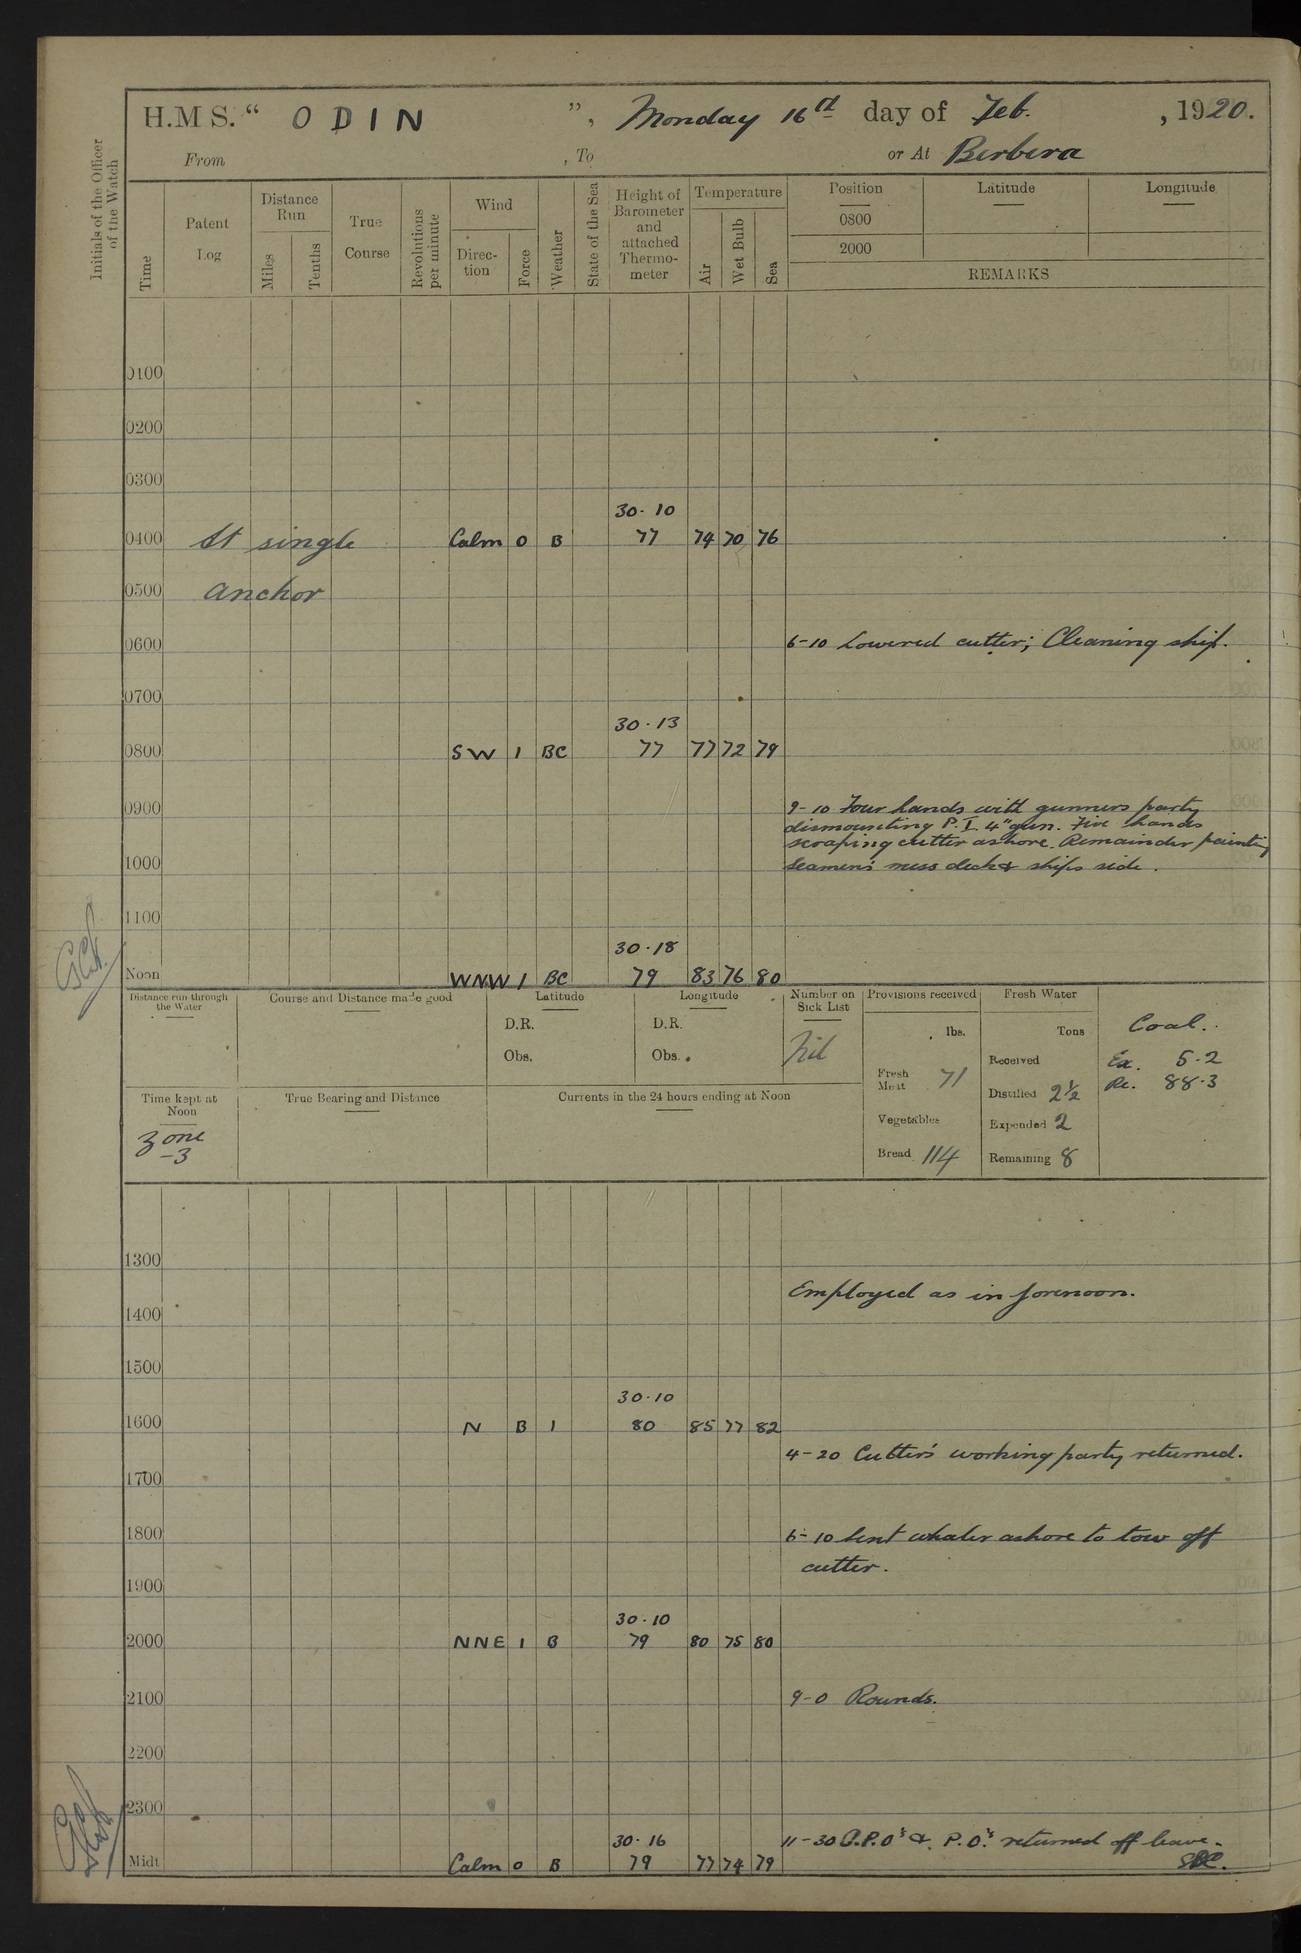 H.M S. “ ODIN ”, Monday 16th day of Feb. , 1920.
From , To or At Berbera
Initials of the Officer of the Watch
Time
Patent Log
Distance Run
Miles
Tenths
True Course
Revolutions per minute
Wind
Direc-tion
Force
Weather
State of the Sea
Height of Barometer and attached Thermo-meter
Temperature
Air
Wet Bulb
Sea
Position
Latitude
Longitude
0800
2000
REMARKS
0100
0200
0300
30·10
0400 At single Calm 0 B 77 74 70 76
0500 anchor
0600 6-10 Lowered cutter; Cleaning ship.
0700
30·13
0800 SW 1 BC 77 77 72 79
0900 9-10 Four hands with gunners party
dismounting P.I. 4" gun. Five hands
scraping cutter ashore. Remainder painting
1000 Seamen's mess deck & ships side.
1100
30·18
Noon WNW 1 BC 79 83 76 80
Distance run through the Water
Course and Distance made good
Latitude
D.R.
Obs.
Longitude
D.R.
Obs.
Number on Sick List
Nil
Provisions received
lbs.
Fresh Meat 71
Vegetables
Bread 114
Fresh Water
Tons
Received
Distilled 2½
Expended 2
Remaining 8
Coal.
Ex. 5·2
Re. 88·3
Time kept at Noon
Zone
-3
True Bearing and Distance
Currents in the 24 hours ending at Noon
1300
Employed as in forenoon.
1400
1500
30·10
1600 N B 1 80 85 77 82
4-20 Cutter's working party returned.
1700
1800 6-10 Sent whaler ashore to tow off
cutter.
1900
30·10
2000 NNE 1 B 79 80 75 80
2100 9-0 Rounds.
2200
2300
30·16 11-30 C.P.O's & P.O.'s returned off leave.
Midt Calm 0 B 79 77 74 79